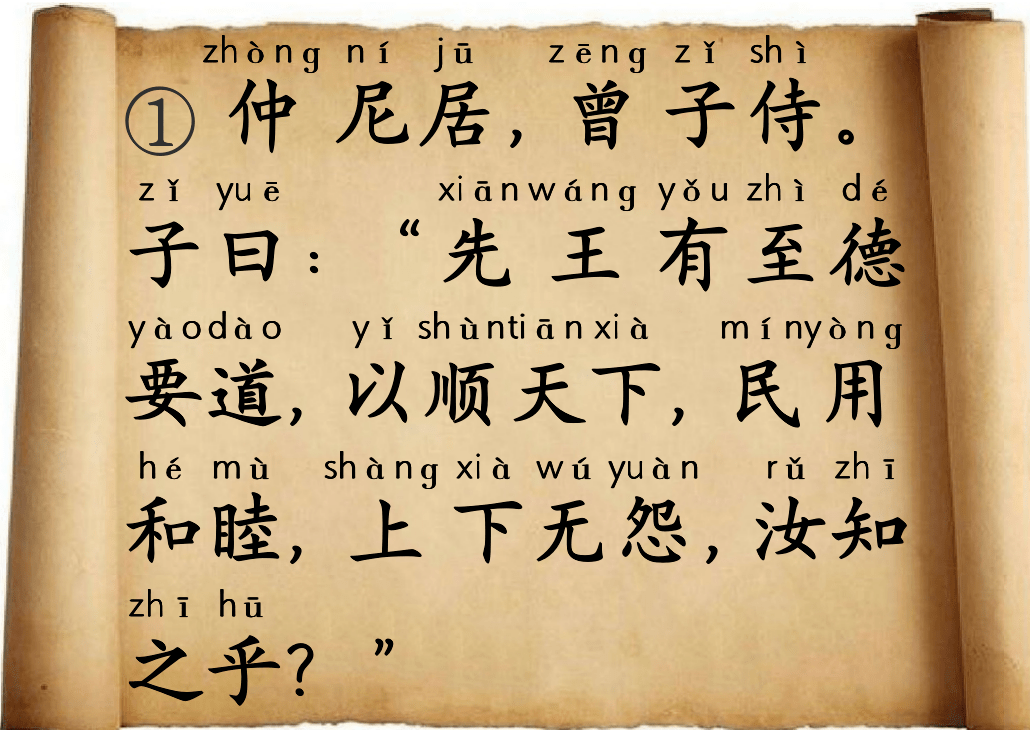 zhòng ní jū zēng zǐ shì
① 仲尼居，曾子侍。
zǐ yuē xiān wáng yǒu zhì dé
子曰：“先王有至德
yào dào yǐ shùn tiān xià mín yòng
要道，以顺天下，民用
hé mù shàng xià wú yuàn rǔ zhī
和睦，上下无怨，汝知
zhī hū
之乎？”